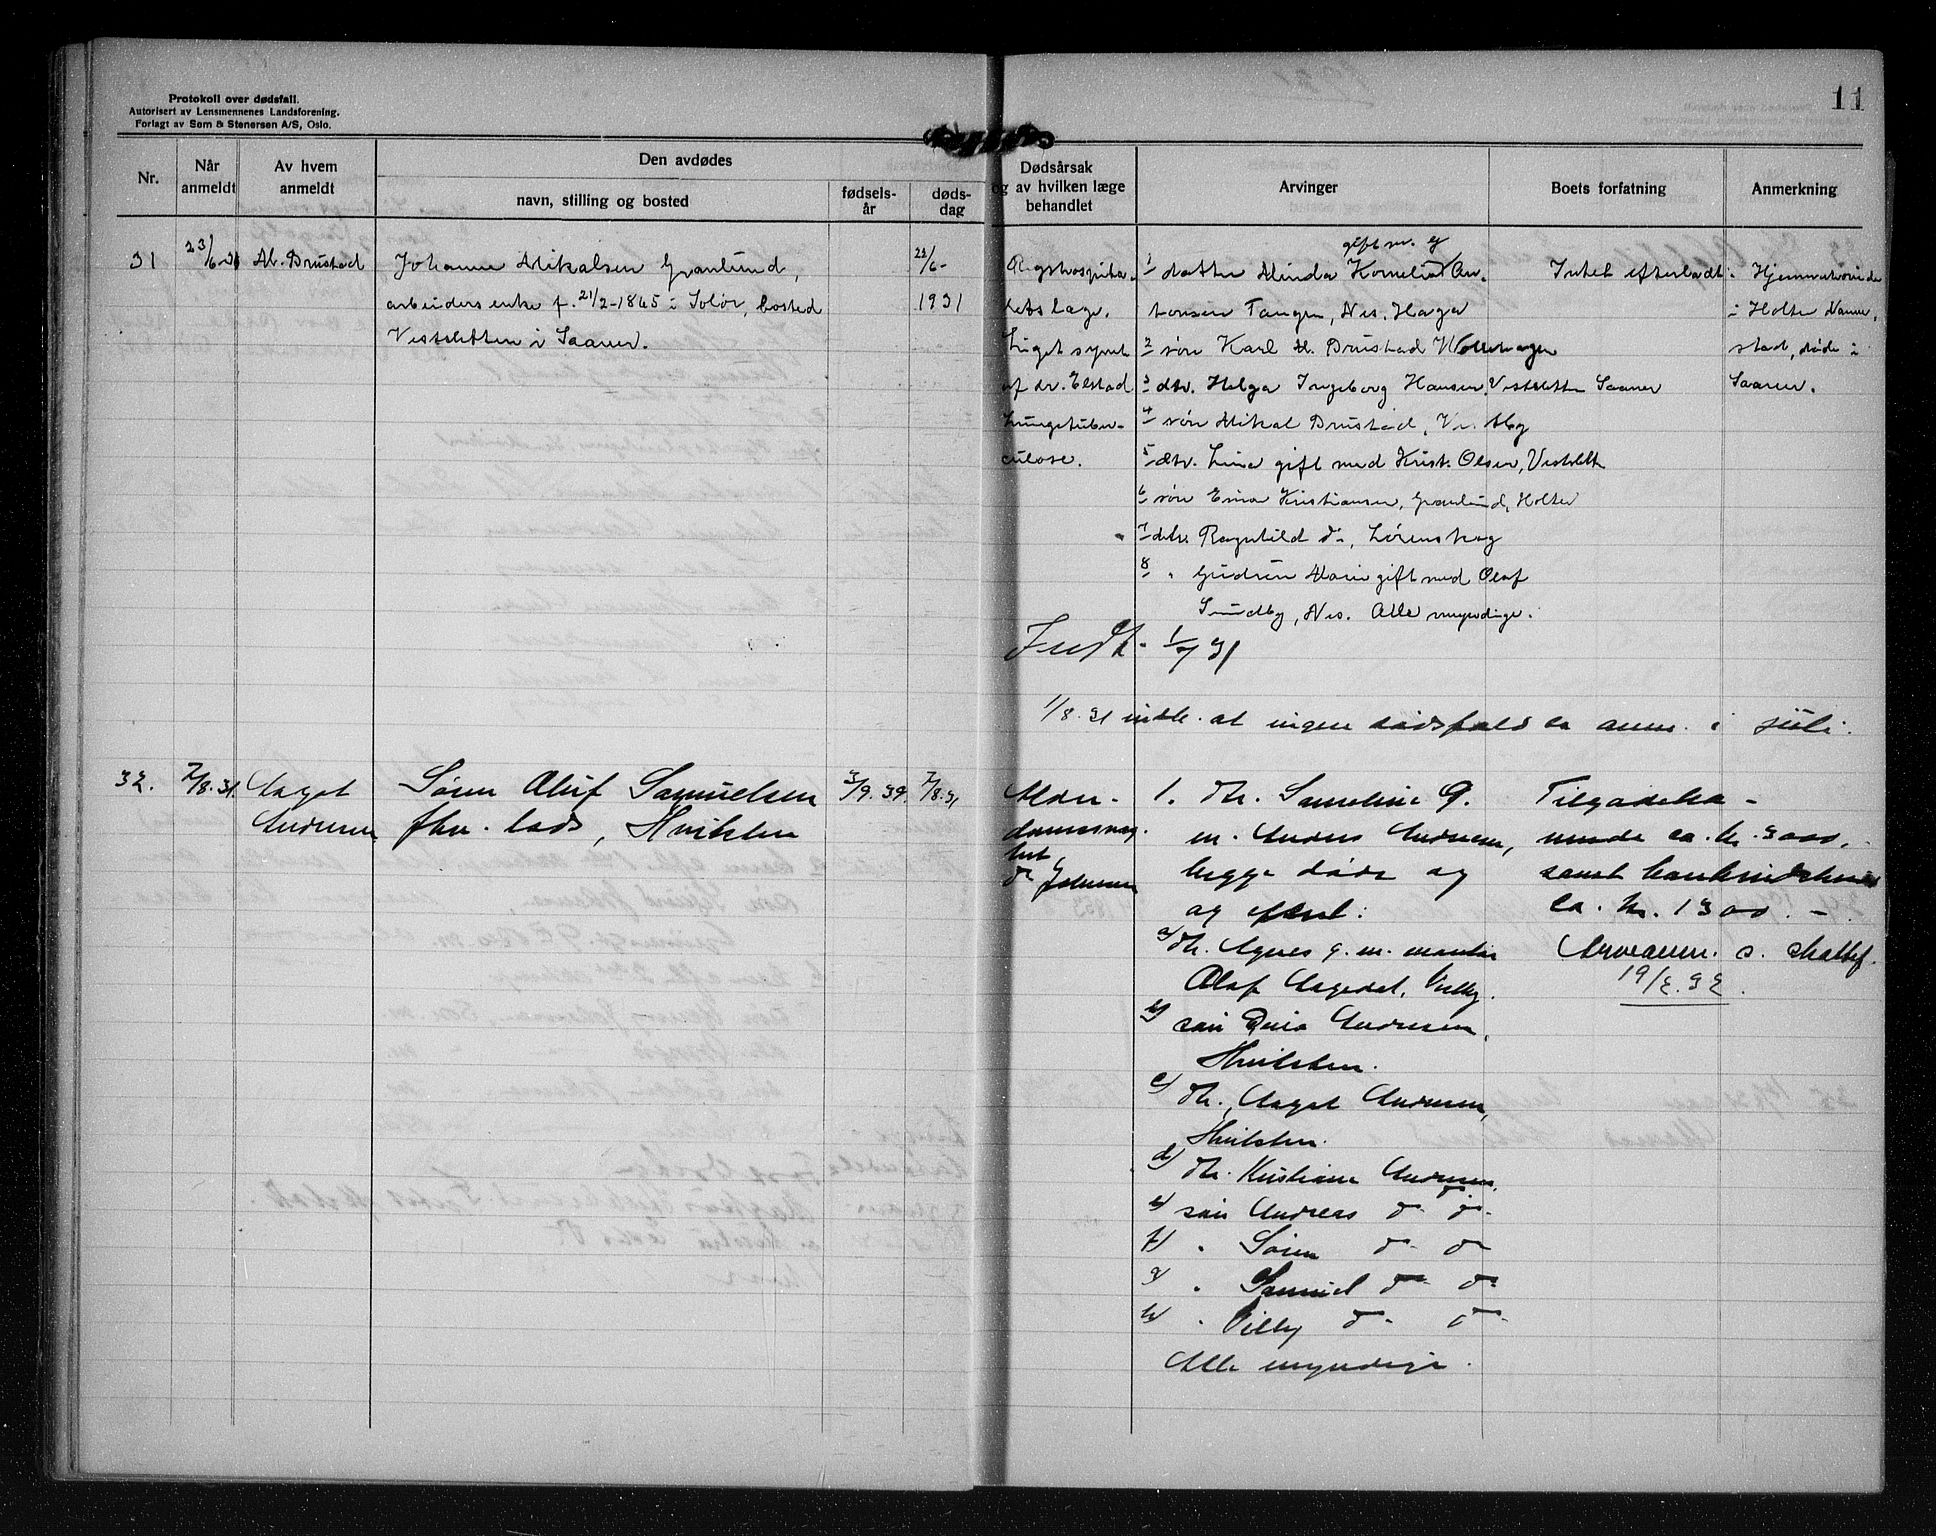 11
Protokoll over dødsfall.
Autorisert av Lensmennenes Landsforening.
Forlagt av Sem & Stenersen A/S, Oslo.
Nr.
Når anmeldt
Av hvem anmeldt
Den avdødes
navn, stilling og bosted
fødsels-år
døds-dag
Dødsårsak og av hvilken læge behandlet
Arvinger
Boets forfatning
Anmerkning
31
23/6-31
M. Brustad
Johanne Mikalsen Granlund,
arbeiders enke f. 21/2-1865 i Solør, bosted
Vestsletten i Saaner.
22/6-
1931
Rigshospita-
lets læge.
Liget synet
af dr. Elstad
Lungetuber-
culose.
gift m. g
1 datter Minda Kornelia An-
tonsen Tangen, Nes. Haga
2 søn Karl M. Brustad
3 dtr. Helga Ingeborg Hansen, Vestsletten Saaner
4 søn Mikal Brustad, Vestby
5 dtr. Lina gift med Krist. Olsen, Vestslett
6 søn Einar Kristiansen, Granlund, Holter
7 dtr. Ragnhild do, Lørenskog
8 " Gudrun Marie gift med Olaf
Sundby, Nes. Alle myndige.
Intet efterladt
Hjemmehørende
i Holter Nanne-
stad, døde i
Saaner.
Indb. 1/7 31
1/8.31 indb. at ingen dødsfald er anm. i juli.
32.
7/8.31.
Aagot
Andresen
Søren Oluf Samuelsen
fhv. lods, Hvitsten
3/9.39.
7/8.31
Alder-
domssvag-
het
dr Johnsen
1. dtr. Sameline g.
m. Anders Andresen,
begge døde og
og efterl:
a) dtr. Agnes g. m. montør
Olaf Aagedal,
b) søn Andresen,
Hvitsten.
c) dtr. Aagot Andresen,
Hvitsten.
d) dtr. Kristiane Andresen,
e) søn Andreas do do
f) " Søren do do
g) " Samuel do do
h) " Villy do do
Alle myndige.
Tilgodeha-
vende ca. kr. 3000,-
samt bankindskud
ca. kr. 1300. -
Arveanm. s. skattef.
19/2.32.